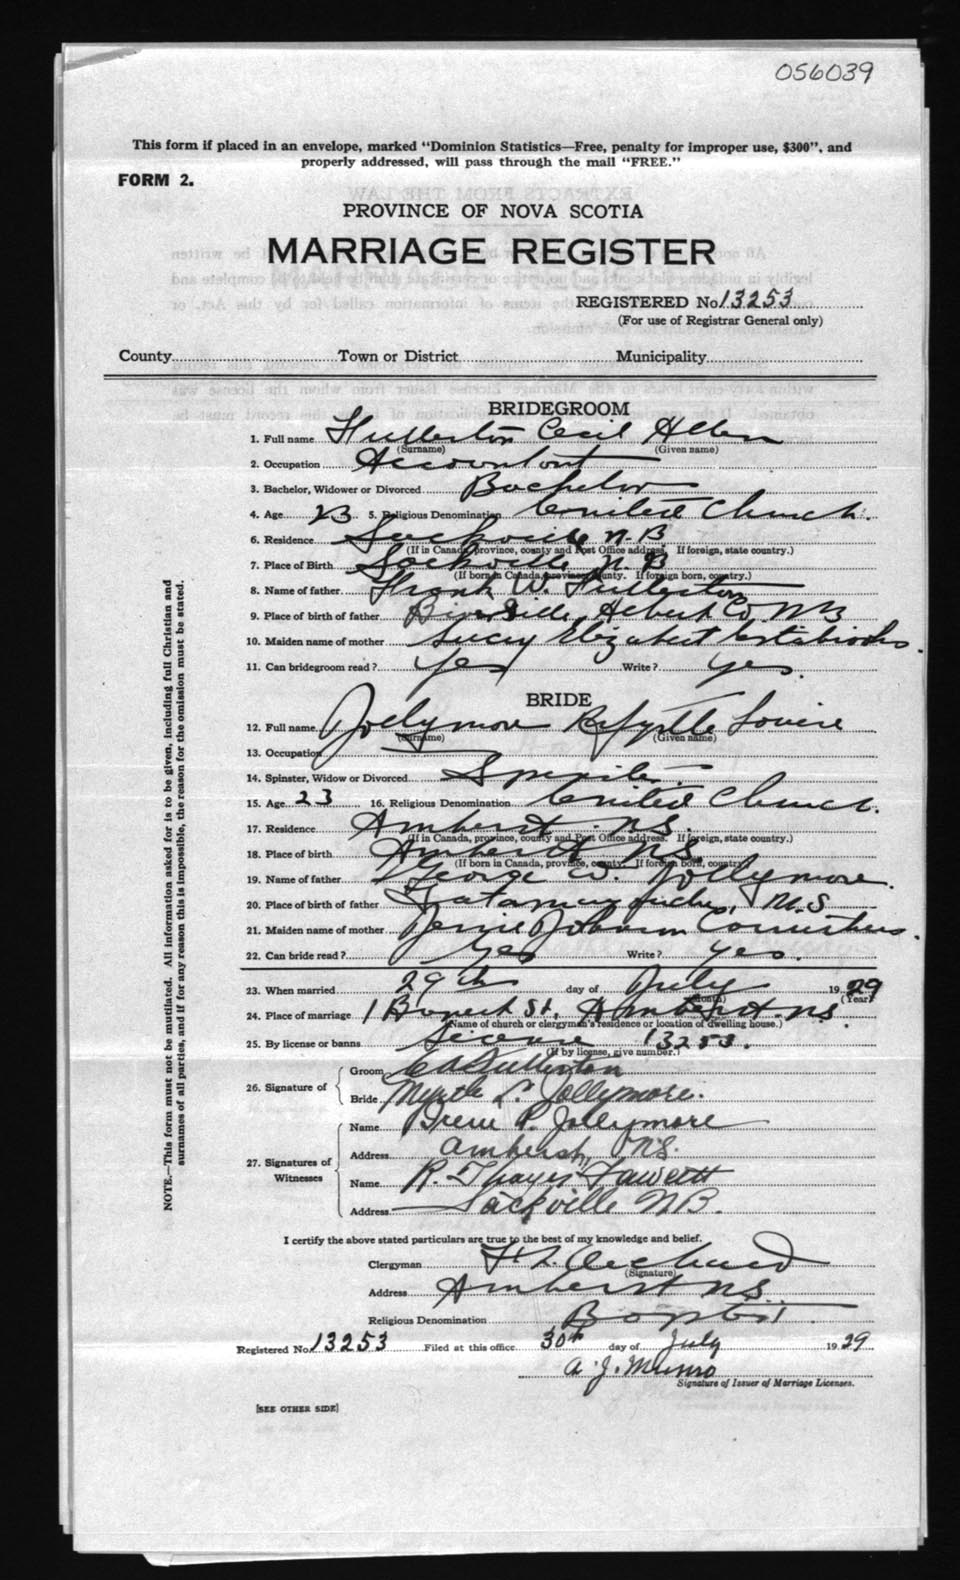 056039
This form if placed in an envelope, marked "Dominion Statistics—Free, penalty for improper use, $300", and
properly addressed, will pass through the mail "FREE."
FORM 2.
PROVINCE OF NOVA SCOTIA
MARRIAGE REGISTER
REGISTERED No 13253
(For use of Registrar General only)
County Town or District Municipality
BRIDEGROOM
1. Full name Fullerton Cecil Allen
(Surname) (Given name)
2. Occupation Accountant
3. Bachelor, Widower or Divorced Bachelor
4. Age 23 5. Religious Denomination United Church.
6. Residence Sackville N.B
(If in Canada, province, county and Post Office address. If foreign, state country.)
7. Place of Birth Sackville N.B
(If born in Canada, province, county. If foreign born, country.)
8. Name of father Frank W. Fullerton
9. Place of birth of father Riverside Albert Co NB
10. Maiden name of mother Lucy Elizabeth Estabrooks.
11. Can bridegroom read? Yes Write? yes.
BRIDE
12. Full name Jollymore Myrtle Louise
(Surname) (Given name)
13. Occupation
14. Spinster, Widow or Divorced Spinster
15. Age 23 16. Religious Denomination United Church.
17. Residence Amherst N.S.
(If in Canada, province, county and Post Office address. If foreign, state country.)
18. Place of birth Amherst N.S.
(If born in Canada, province, county. If foreign born, country)
19. Name of father George W. Jollymore.
20. Place of birth of father Tatamagouche, N.S
21. Maiden name of mother Johnson
22. Can bride read? Yes Write? yes.
23. When married 29th day of July 1929
(Month) (Year)
24. Place of marriage St, Amherst. N.S.
(Name of church or clergyman's residence or location of dwelling house.)
25. By license or banns License 13253.
(If by license, give number.)
26. Signature of
Groom C A Fullerton
Bride Myrtle L. Jollymore.
27. Signatures of
Witnesses
Name Irene P. Jollymore
Address Amherst, N.S.
Name R. Thayer Fawcett
Address Sackville N.B.
I certify the above stated particulars are true to the best of my knowledge and belief.
Clergyman
(Signature)
Address Amherst N.S.
Religious Denomination Baptist.
Registered No. 13253 Filed at this office 30th day of July 1929
A. J. Munro
Signature of Issuer of Marriage Licenses.
[SEE OTHER SIDE]
NOTE.—This form must not be mutilated. All information asked for is to be given, including full Christian and
surnames of all parties, and if for any reason this is impossible, the reason for the omission must be stated.